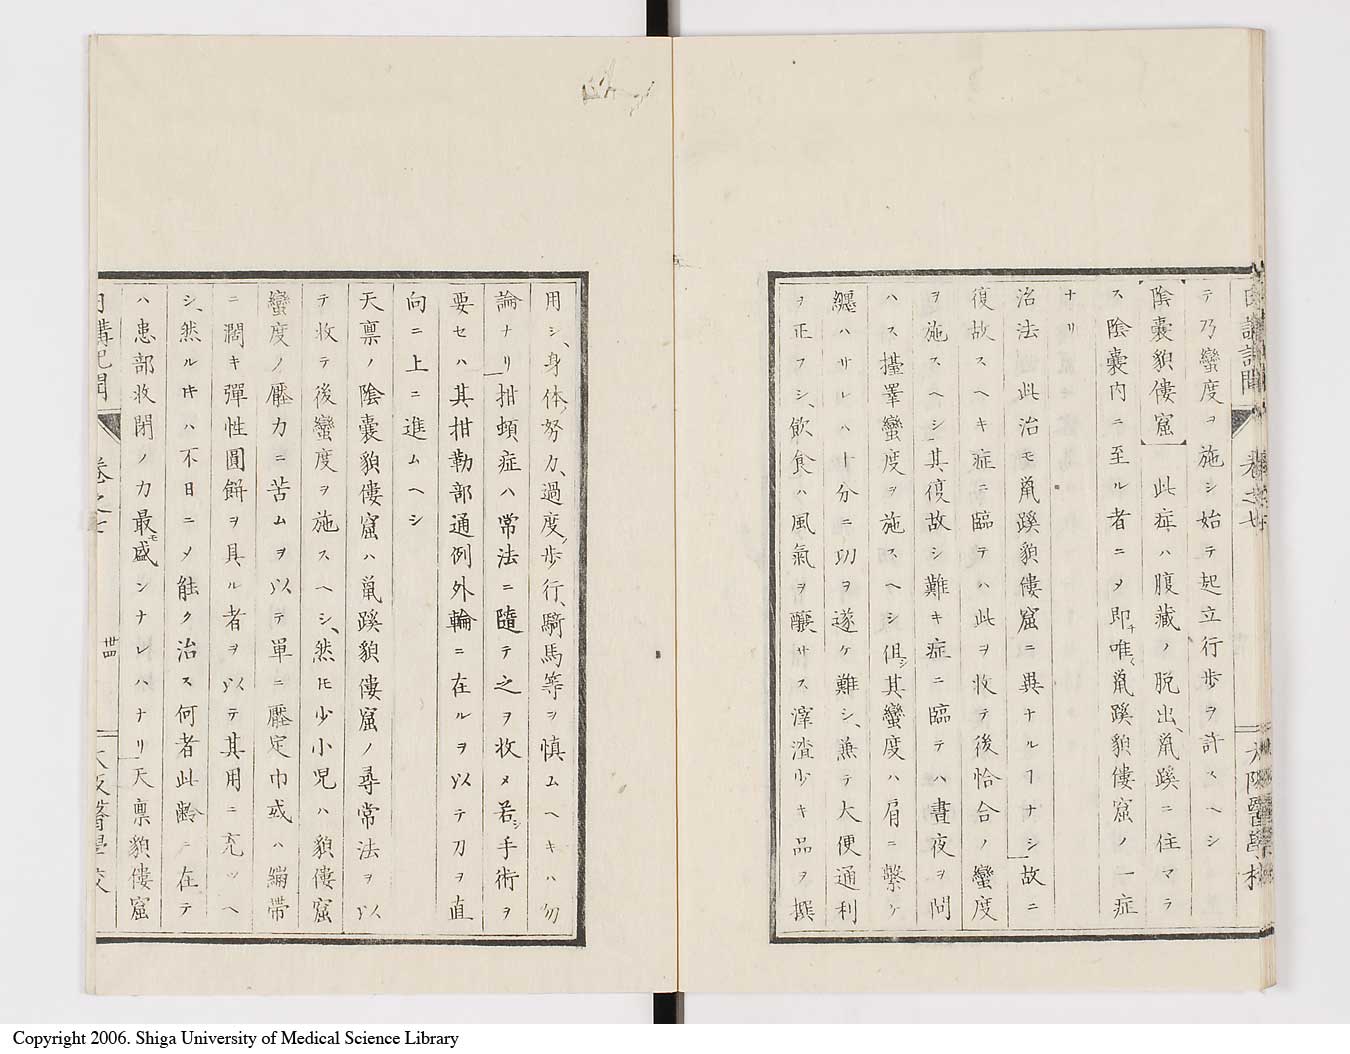 テ乃蠻度ヲ施シ始テ起立行歩ヲ許スヘシ
陰嚢貌僂窟 此症ハ腹藏ノ脱出、鼠蹊ニ住マラ
ス陰嚢内ニ至ル者ニメ即チ唯鼠蹊貌僂窟ノ一症
ナリ
治法 此治モ鼠蹊貌僂窟ニ異ナルヿナシ故ニ
復故スヘキ症ニ臨テハ此ヲ收テ後恰合ノ蠻度
ヲ施スヘシ其復故シ難キ症ニ臨テハ晝夜ヲ問
ハス擡睪蠻度ヲ施スヘシ但シ其蠻度ハ肩ニ繋ケ
纒ハサレハ十分ニ功ヲ遂ケ難シ、兼テ大便通利
ヲ正フシ、飲食ハ風氣ヲ釀サス滓渣少キ品ヲ撰
用シ、身体ノ努力、過度ノ歩行、騎馬等ヲ慎ムヘキハ勿
論ナリ拑頓症ハ常法ニ隨テ之ヲ收メ若シ手術ヲ
要セハ其拑勒部通例外輪ニ在ルヲ以テ刀ヲ直
向ニ上ニ進ムヘシ
天禀ノ陰嚢貌僂窟ハ鼠蹊貌僂窟ノ尋常法ヲ以
テ收テ後蠻度ヲ施スヘシ、然𪜈少小児ハ貌僂窟
蠻度ノ壓力ニ苦ムヲ以テ單ニ壓定巾或ハ繃帶
ニ濶キ彈性圓餅ヲ具ル者ヲ以テ其用ニ充ツヘ
シ、然ル𪜈ハ不日ニメ能ク治ス何者此齢ニ在テ
ハ患部收閉ノ力最モ盛ンナレハナリ天禀貌僂窟
日講記聞 卷之七 卅四 大阪醫學校
Copyright 2006. Shiga University of Medical Science Library